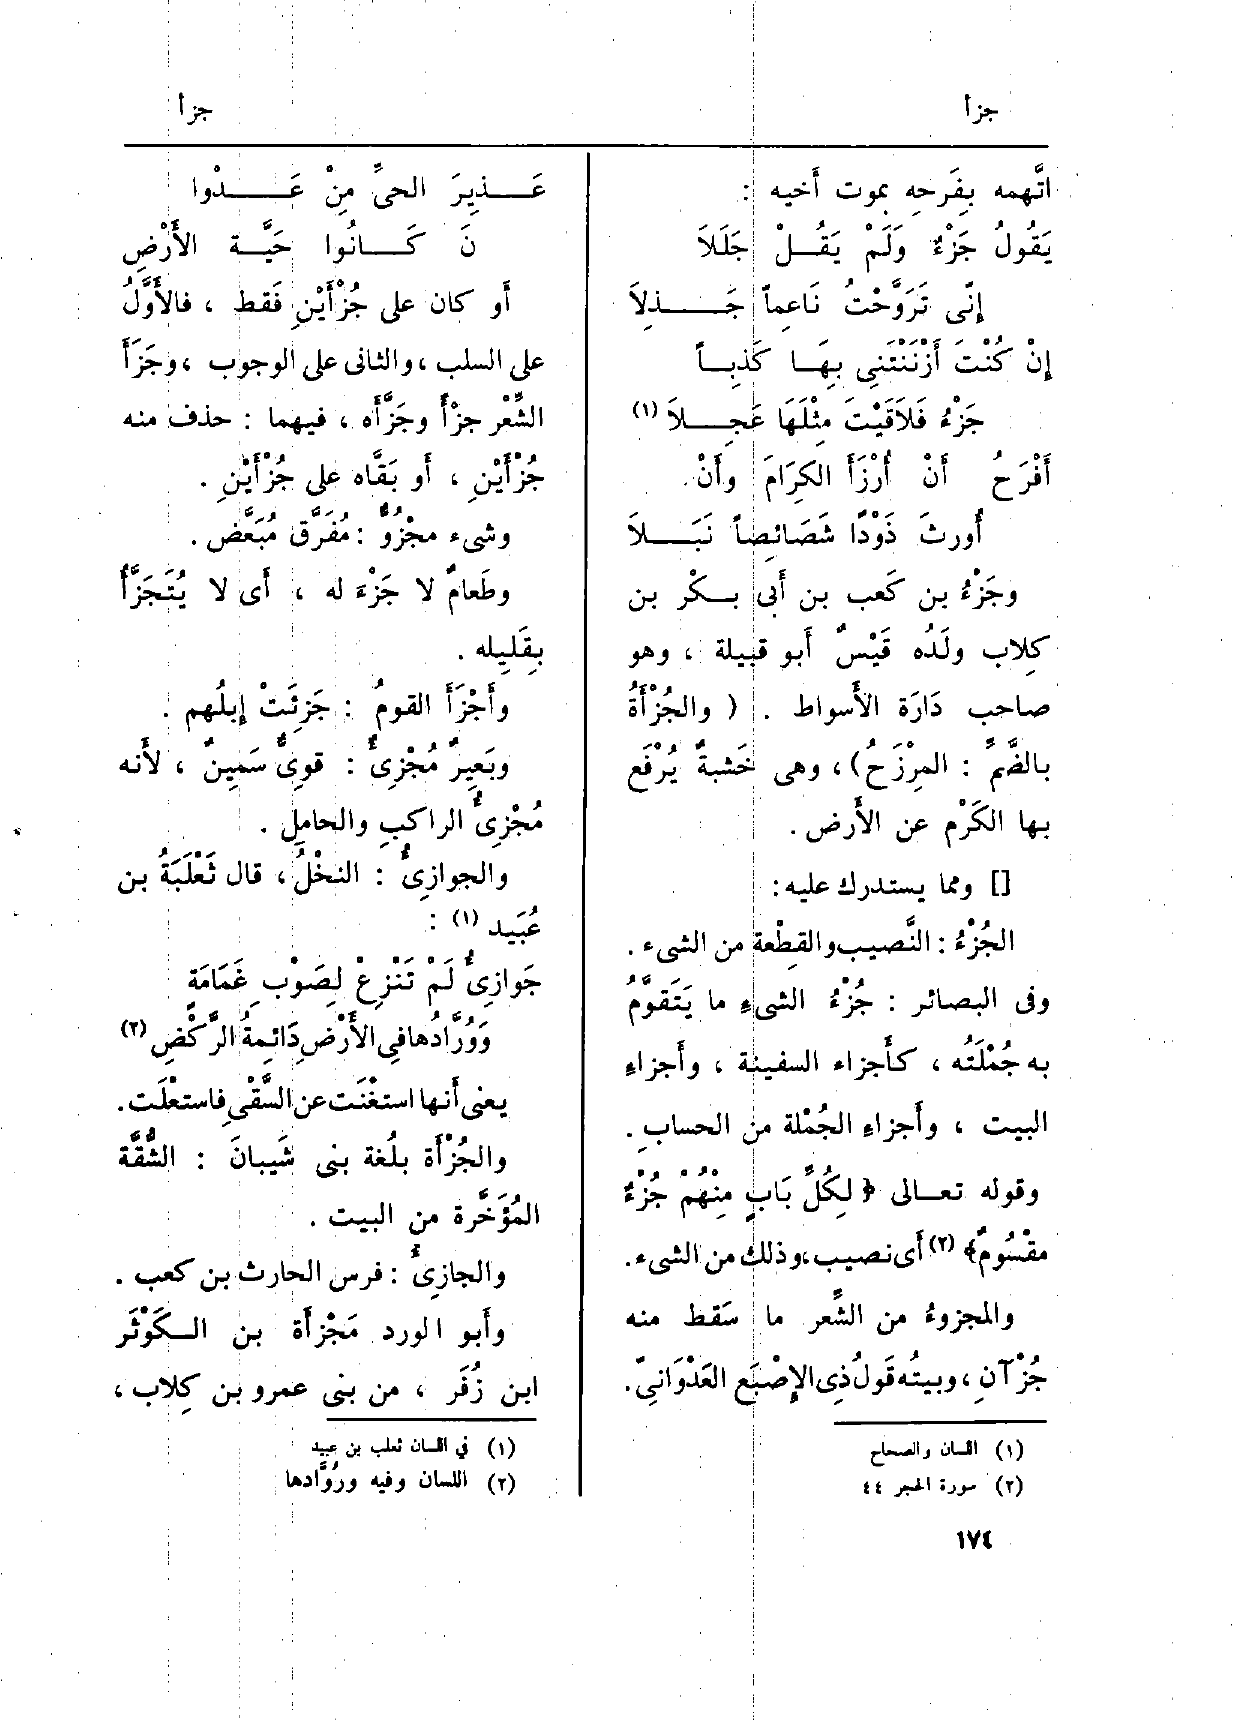 جزأ
جزأ
اتَّهمه بِفَرحِه بموت أَخيه :
يَقُولُ جَزْءٌ وَلَمْ يَقُـلْ جَلَلاَ
إِنِّى تَرَوَّحْتُ نَاعِماً جَـذِلاَ
إِنْ كُنْتَ أَزْنَنْتَنِى بِهَـا كَذِبـاً
جَزْءُ فَلاَقَيْتَ مِثْلَهَا عَجِـلاَ (١)
أَفْرَحُ أَنْ أُرْزَأَ الكِرَامَ وأَنْ
أُورثَ ذَوْدًا شَصَائِصاً نَبَـلاَ
وجَزْءُ بن كَعب بن أَبى بـكْر بن
كِلاب ولَدُه قَيْسٌ أَبو قبيلة ، وهو
صاحب دَارَة الأَسواط . ( والجُزْأَةُ
بالضَّمِّ : المِرْزَحُ)، وهى خَشبةٌ يُرْفَع
بها الكَرْم عن الأَرض .
[] ومما يستدرك عليه :
الجُزْءُ : النَّصيب والقِطْعة من الشىء .
وفى البصائر : جُزْءُ الشىءِ ما يَتَقوَّمُ
به جُمْلَتُه ، كأَجزاء السفينة ، وأَجزاءِ
البيت ، وأَجزاءِ الجُمْلة من الحسابِ .
وقوله تعـالى ﴿ لِكُلِّ بَابٍ مِنْهُمْ جُزْءٌ
مقْسُومٌ﴾ (٢) أَى نصيب، وذلك من الشىء .
والمجزوءُ من الشِّعر ما سَقط منه
جُزْآنِ ، وبيتُه قولُ ذى الإِصْبَع العَدْوَانىّ .
عَـذِيرَ الحىِّ مِنْ عَـدْوا
نَ كَـانُوا حَيَّـة الأَرْضِ
أَو كان على جُزْأَيْنِ فَقط ، فالأَوَّلُ
على السلب ، والثانى على الوجوب ، وجَزَأَ
الشِّعْر جزْأً وجَزَّأَه ، فيهما : حذف منه
جُزْأَيْنِ ، أَو بَقَّاه على جُزْأَيْنِ .
وشىء مجْزُوٌّ : مُفَرَّق مُبَعَّض .
وطَعامٌ لا جَزْءَ له ، أَى لا يُتَجَزَّأُ
بِقَلِيله .
وأَجْزَأَ القومُ : جَزِئَتْ إِبلُهم .
وبَعِيرٌ مُجْزِئٌ : قوىٌّ سَمِينٌ ، لأَنه
مُجْزِئُ الراكبِ والحامل .
والجوازِئُ : النخْلُ ، قال ثَعْلَبَةُ بن
عُبَيد (١) :
جَوازِئُ لَمْ تَنْزِعْ لِصَوْبِ غَمَامَةٍ
وَوُرَّادُها فى الأَرْضِ دَائِمةُ الرَّكْضِ (٢)
يعنى أَنها استغْنَت عن السَّقْىِ فاستعْلَت .
والجُزْأَة بلُغة بنى شَيبانَ : الشُّقَّة
المُؤَخَّرة من البيت .
والجازِئُ : فرس الحارث بن كعب .
وأَبو الورد مَجْزأَة بن الـكَوْثَر
ابن زُفَر ، من بنى عمرو بن كِلاب ،
(١) اللسان والصحاح
(٢) سورة الحجر ٤٤
(١) في اللسان ثعلب بن عبيد
(٢) اللسان وفيه ورُوَّادها
١٧٤